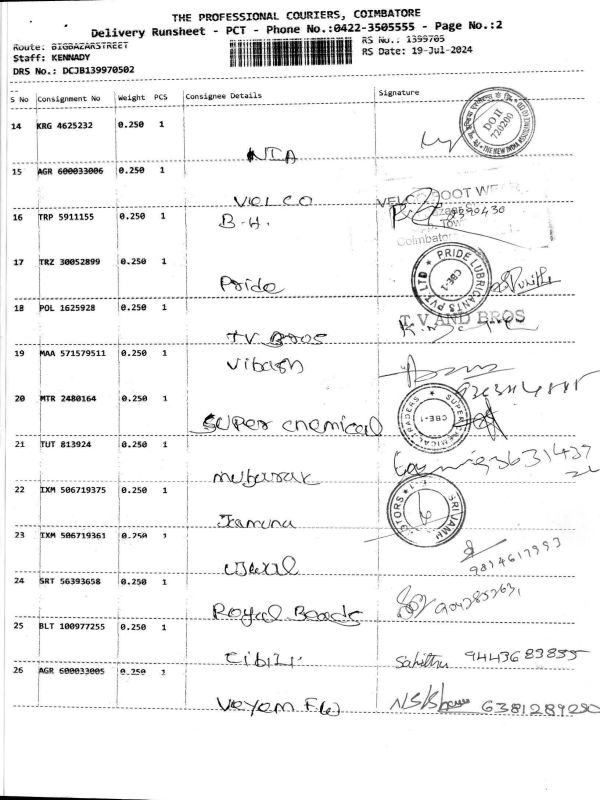 THE PROFESSIONAL COURIERS, COIMBATORE
Delivery Runsheet - PCT - Phone No.:0422-3505555 - Page No.:2
Route: BIGBAZARSTREET
RS No.: 1399705
Staff: KENNADY
RS Date: 19-Jul-2024
DRS No.: DCJB139970502
S No Consignment No Weight PCS Consignee Details Signature
14 KRG 4625232 0.250 1
NIA
DO II 720200
15 AGR 600033006 0.250 1
VELCO
16 TRP 5911155 0.250 1 B.H.
Coimbator
17 TRZ 30052899 0.250 1
Pride
PRIDE LUBRICANTS PVT LTD CBE-1
18 POL 1625928 0.250 1
TV Bros
T V AND BROS
19 MAA 571579511 0.250 1 Vibash
20 MTR 2480164 0.250 1
Super chemical
SUPER CHEMICAL TRADERS CBE-1
21 TUT 813924 0.250 1
mubarak
22 IXM 506719375 0.250 1
Jamuna
23 IXM 506719361 0.250 1
9814617993
24 SRT 56393658 0.250 1
Royal Boards
25 BLT 100977255 0.250 1
Cibili
Sahithu 9443683835
26 AGR 600033005 0.250 1
6381289250